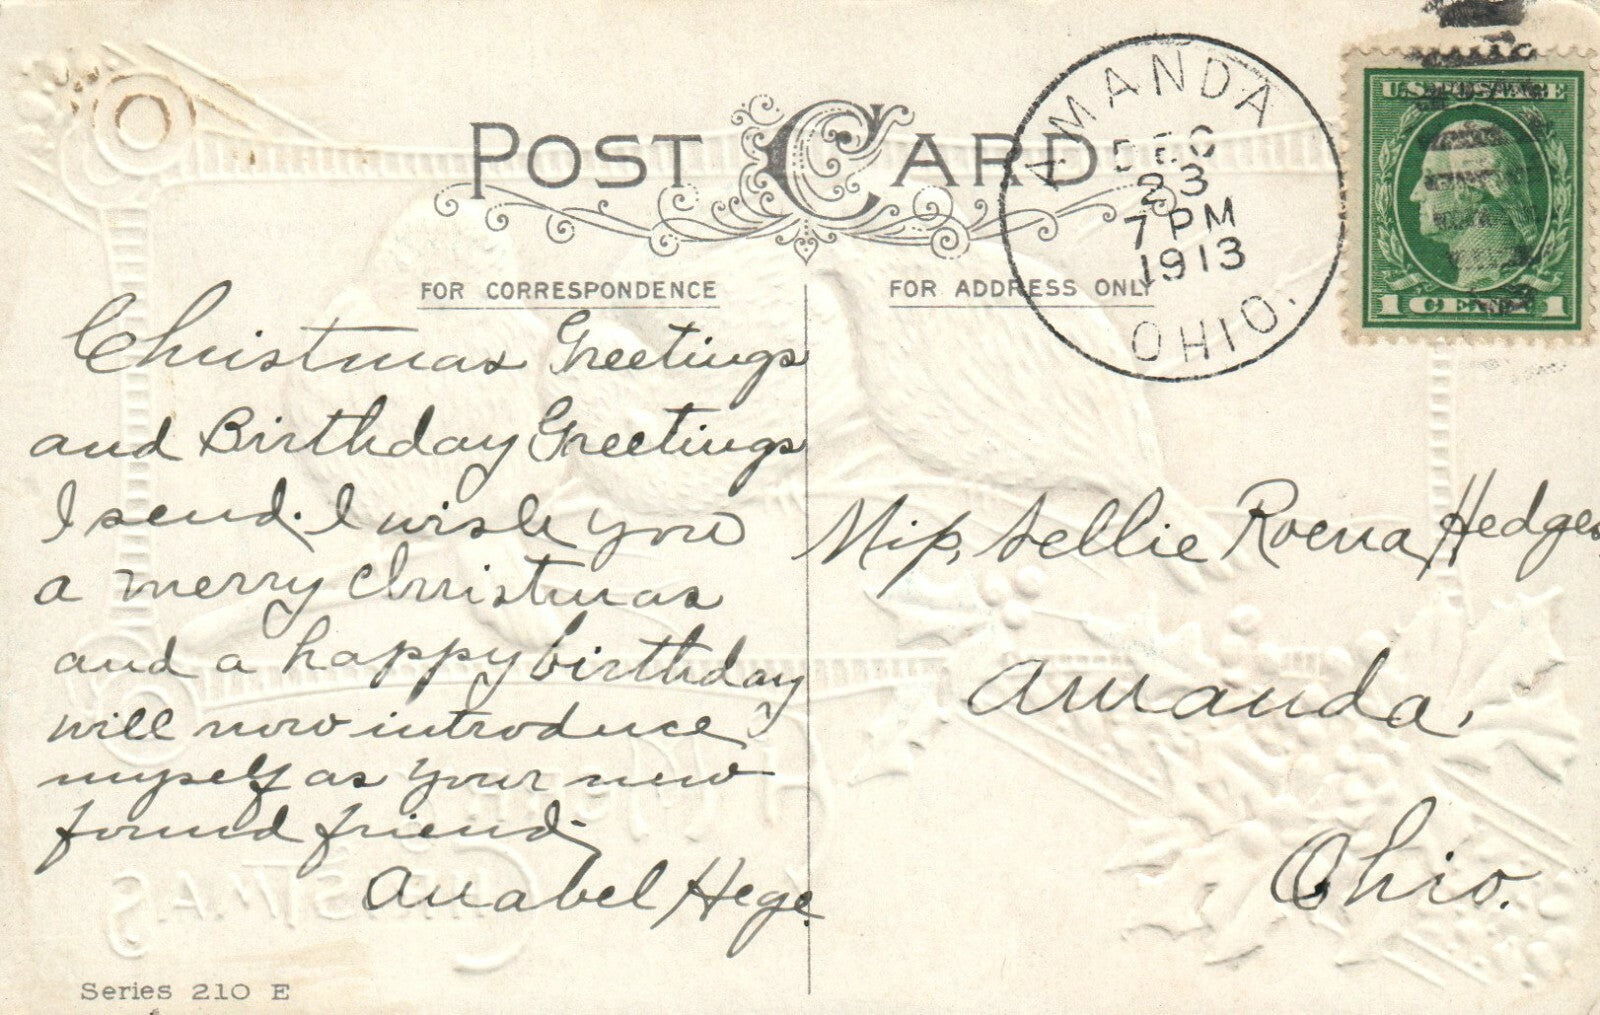 POST CARD
AMANDA
DEC
23
7 PM
1913
OHIO.
U.S. POSTAGE
1 CENT 1
FOR CORRESPONDENCE
FOR ADDRESS ONLY
Christmas Greetings
and Birthday Greetings
I send. I wish you
a merry Christmas
and a happy birthday
will now introduce
myself as your new
found friend,
Anabel Hege.
Series 210 E
Miss. Sellie Roena Hedges.
Amanda,
Ohio.
CHRISTMAS